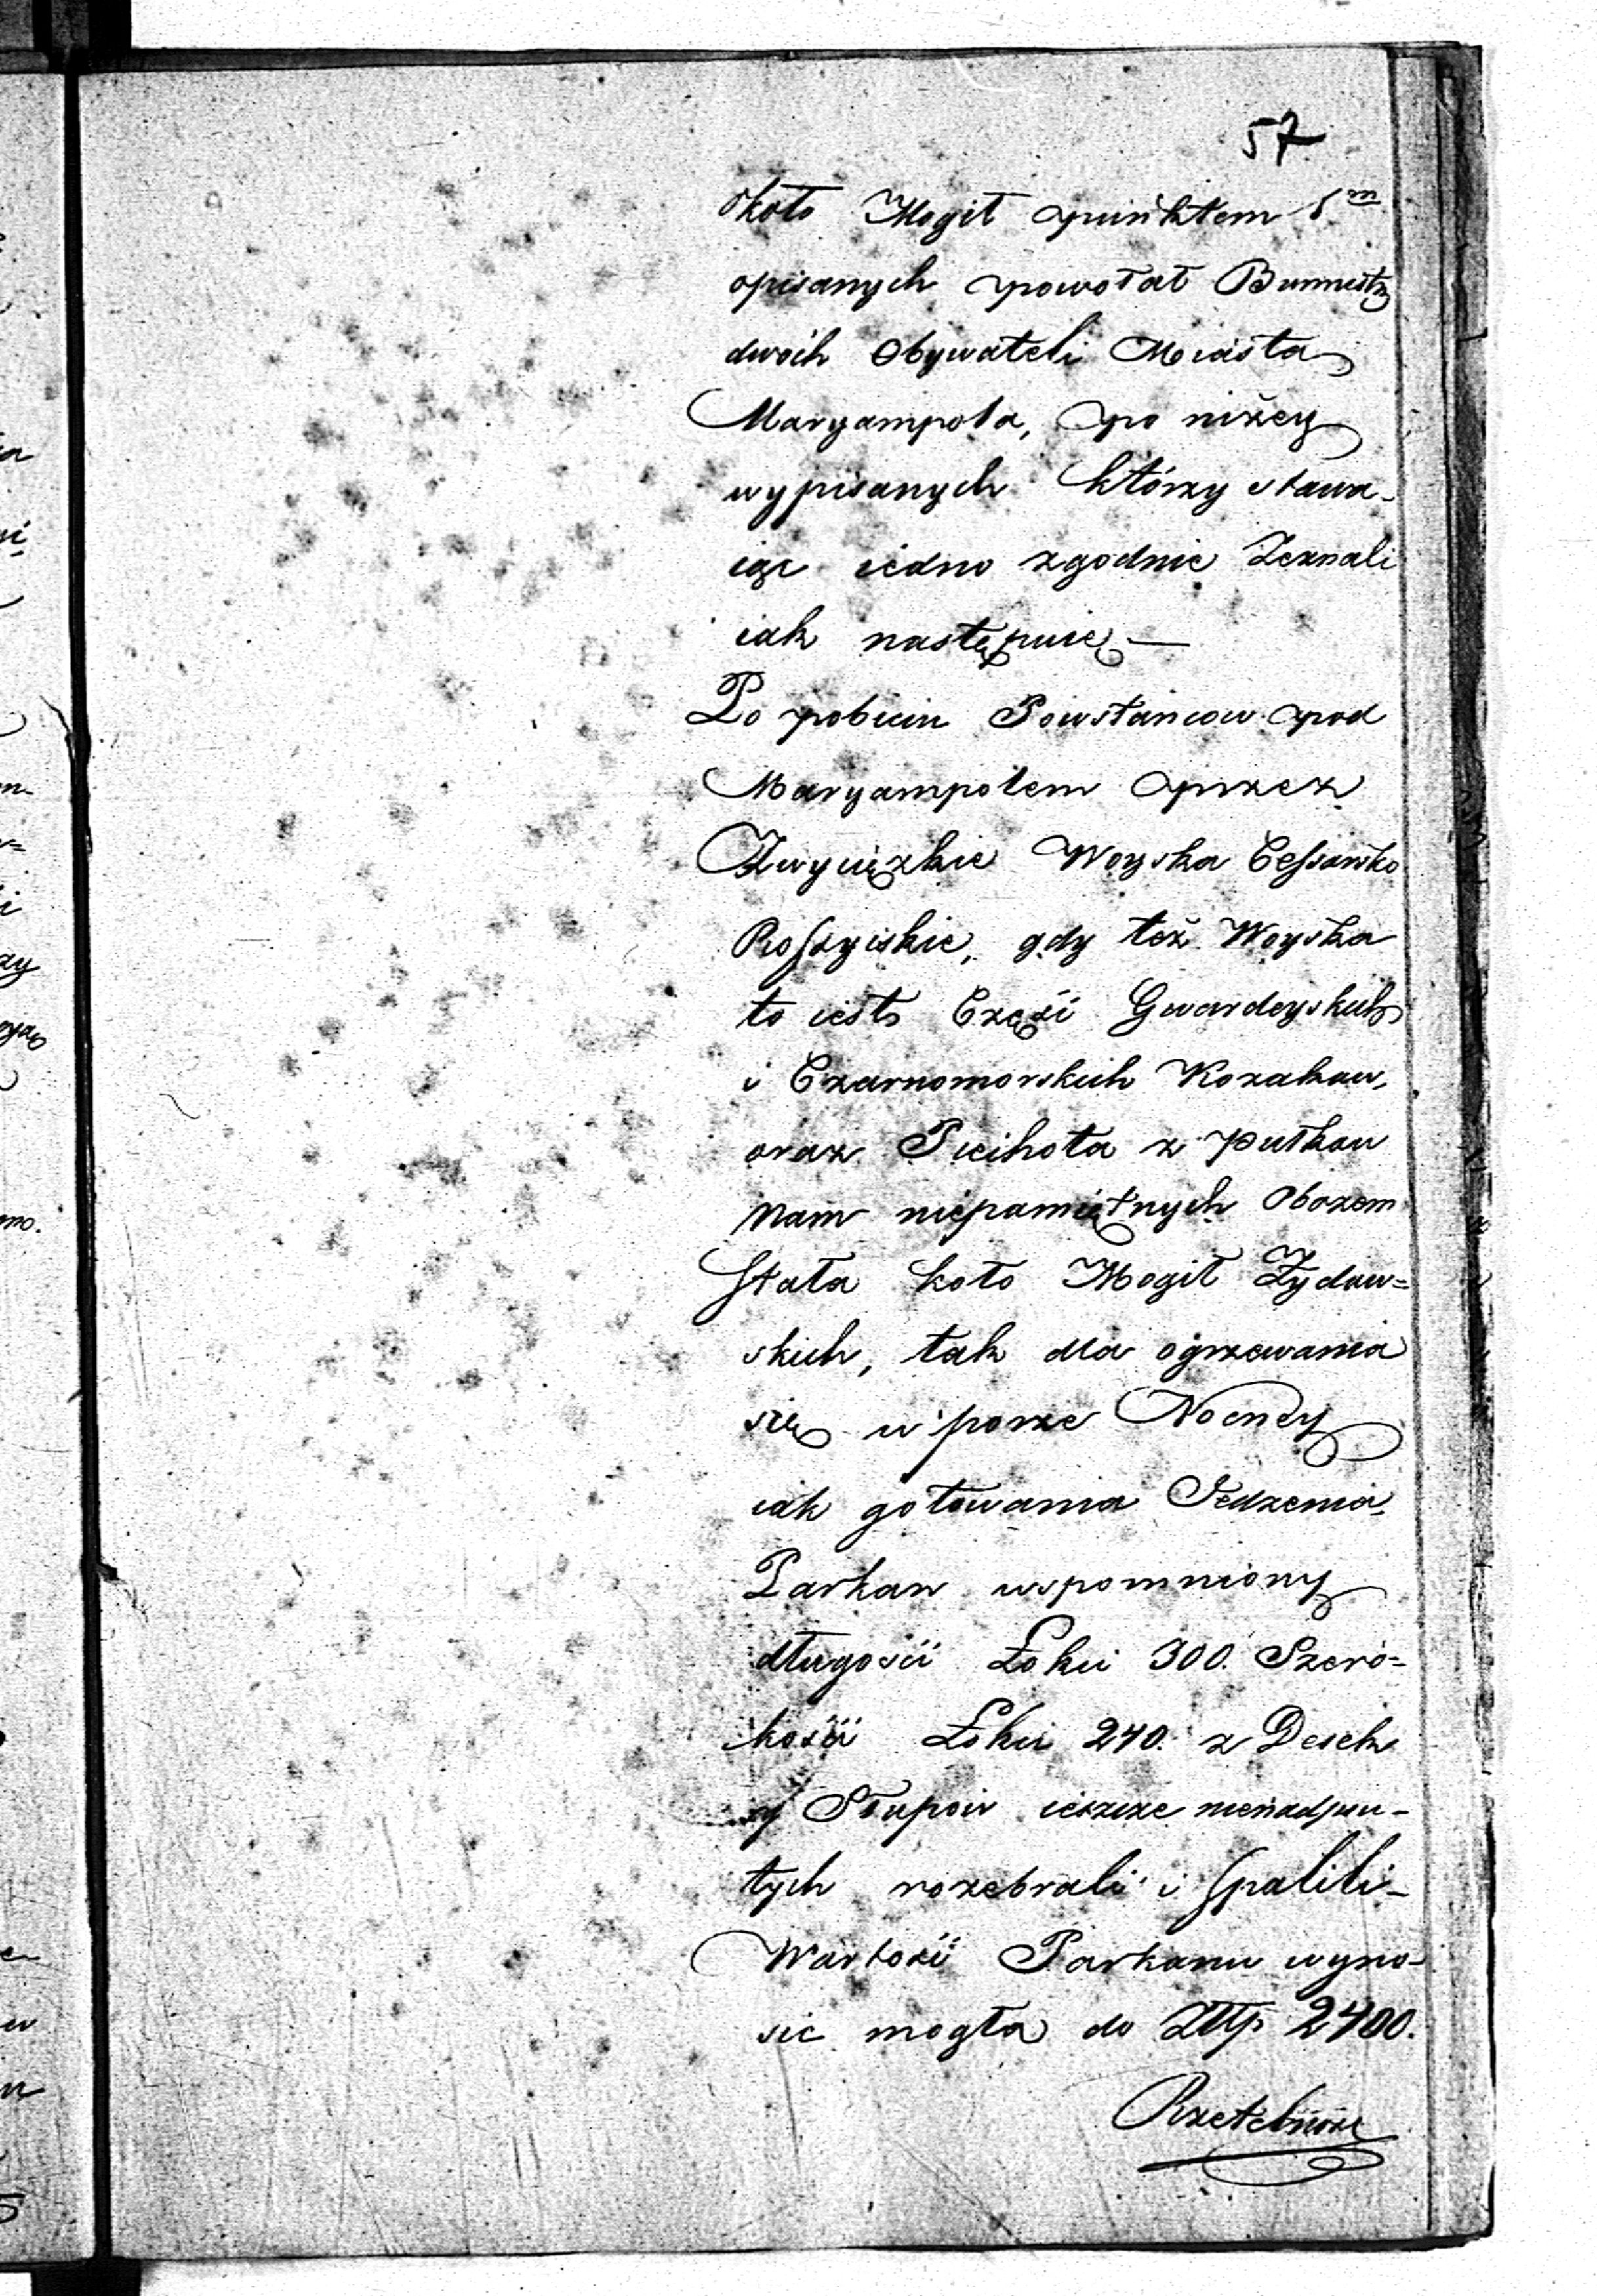 57
około Mogił punktem 1m
opisanych powołał Burmistrz
dwóch Obywateli Miasta
Maryampola, po niżey
wypisanych którzy stawa-
iąc iedno zgodnie Zeznali
iak następuie —
Po pobiciu Powstancow pod
Maryampolem przez
Zwycięzkie Woyska Cessarsko
Rossyiskie, gdy też Woyska
to iest Części Gwardeyskich
i Czarnomorskich Kozakow,
oraz Piechota z Pułkow
Nam niepamiętnych Obozem
Stała koło Mogił Żydow=
skich, tak dla ogrzewania
się w porze Nocney
iak gotowania Jedzenia
Parkan wspomniony
długości Łokci 300. Szero=
kości Łokci 240. z Desek
y Słupow ieszcze nienadpsu-
tych rozebrali i Spalili-
Wartość Parkanu wyno-
sic mogła do Złłp 2400.
Rzetelność